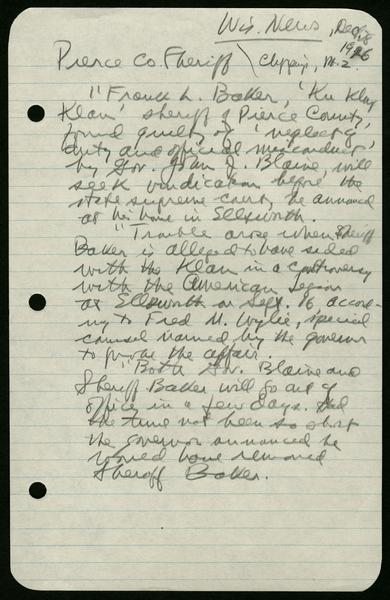 Wis. News, Dec 28
1926
Pierce Co. Sheriff \ Clipping, M. 2.
"Frank L. Baker, 'Ku Klux
Klan' sheriff of Pierce County,
found guilty of 'neglect of
duty and official misconduct'
by Gov. John J. Blaine, will
seek vindication before the
state supreme court, he announced
at his home in Ellsworth.
"Trouble arose when Sheriff
Baker is alleged to have sided
with the Klan in a controversy
with the American Legion
at Ellsworth on Sept. 16 accord-
ing to Fred M. Wylie, special
counsel named by the governor
to probe the affair.
"Both Gov. Blaine and
Sheriff Baker will go out of
office in a few days. Had
the time not been so short
the governor announced he
would have removed
Sheriff Baker.